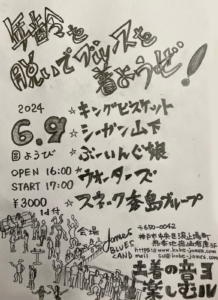 年齢を
脱いでブルースを
着ようぜ!
2024
6.9
日ようび
OPEN 16:00
START 17:00
¥3000
1d付
☆キングビスケット
☆シーガン山下
☆ぶいんぐ娘
☆ウォーターズ
☆スネーク奈良グループ
会場
James
BLUES
LAND
〒650-0042
神戸市中央区波止場町
mail
土着の音を
楽しむル